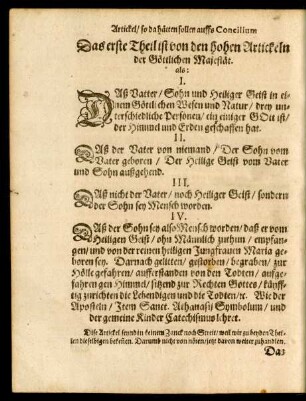 Artickel / so da hätten sollen auffs Concilium
Das erste Theil ist von den hohen Artickeln
der Göttlichen Majestät.
als:
I.
DAß Vatter / Sohn und Heiliger Geist in ei-
nem Göttlichen Wesen und Natur / drey un-
terschiedliche Personen / ein einiger GOtt ist /
der Himmel und Erden geschaffen hat.
II.
DAß der Vater von niemand / Der Sohn vom
Vater geboren / Der Heilige Geist vom Vater
und Sohn außgehend.
III.
DAß nicht der Vater / noch Heiliger Geist / sondern
der Sohn sey Mensch worden.
IV.
DAß der Sohn sey also Mensch worden / daß er vom
Heiligen Geist / ohn Männlich zuthun / empfan-
gen / und von der reinen heiligen Jungfrauen Maria ge-
boren sey. Darnach gelitten / gestorben / begraben / zur
Hölle gefahren / aufferstanden von den Todten / aufge-
fahren gen Himmel / sitzend zur Rechten Gottes / künff-
tig zurichten die Lebendigen und die Todten / ꝛc. Wie der
Aposteln / Item Sanct. Athanasij Symbolum / und
der gemeine Kinder Catechismus lehret.
Diese Artickel seynd in keinem Zanck noch Streit / weil wir zu beyden Thei-
len dieselbigen bekennen. Darumb nicht von nöten / jetzt davon weiter zuhandlen.
Das